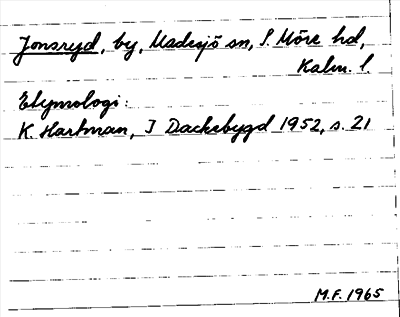 Jonsryd, by, Madesjö sn, S. Möre hd,
Kalm. l.
Etymologi:
K. Hartman, I Dackebygd 1952, s. 21
M.F. 1965